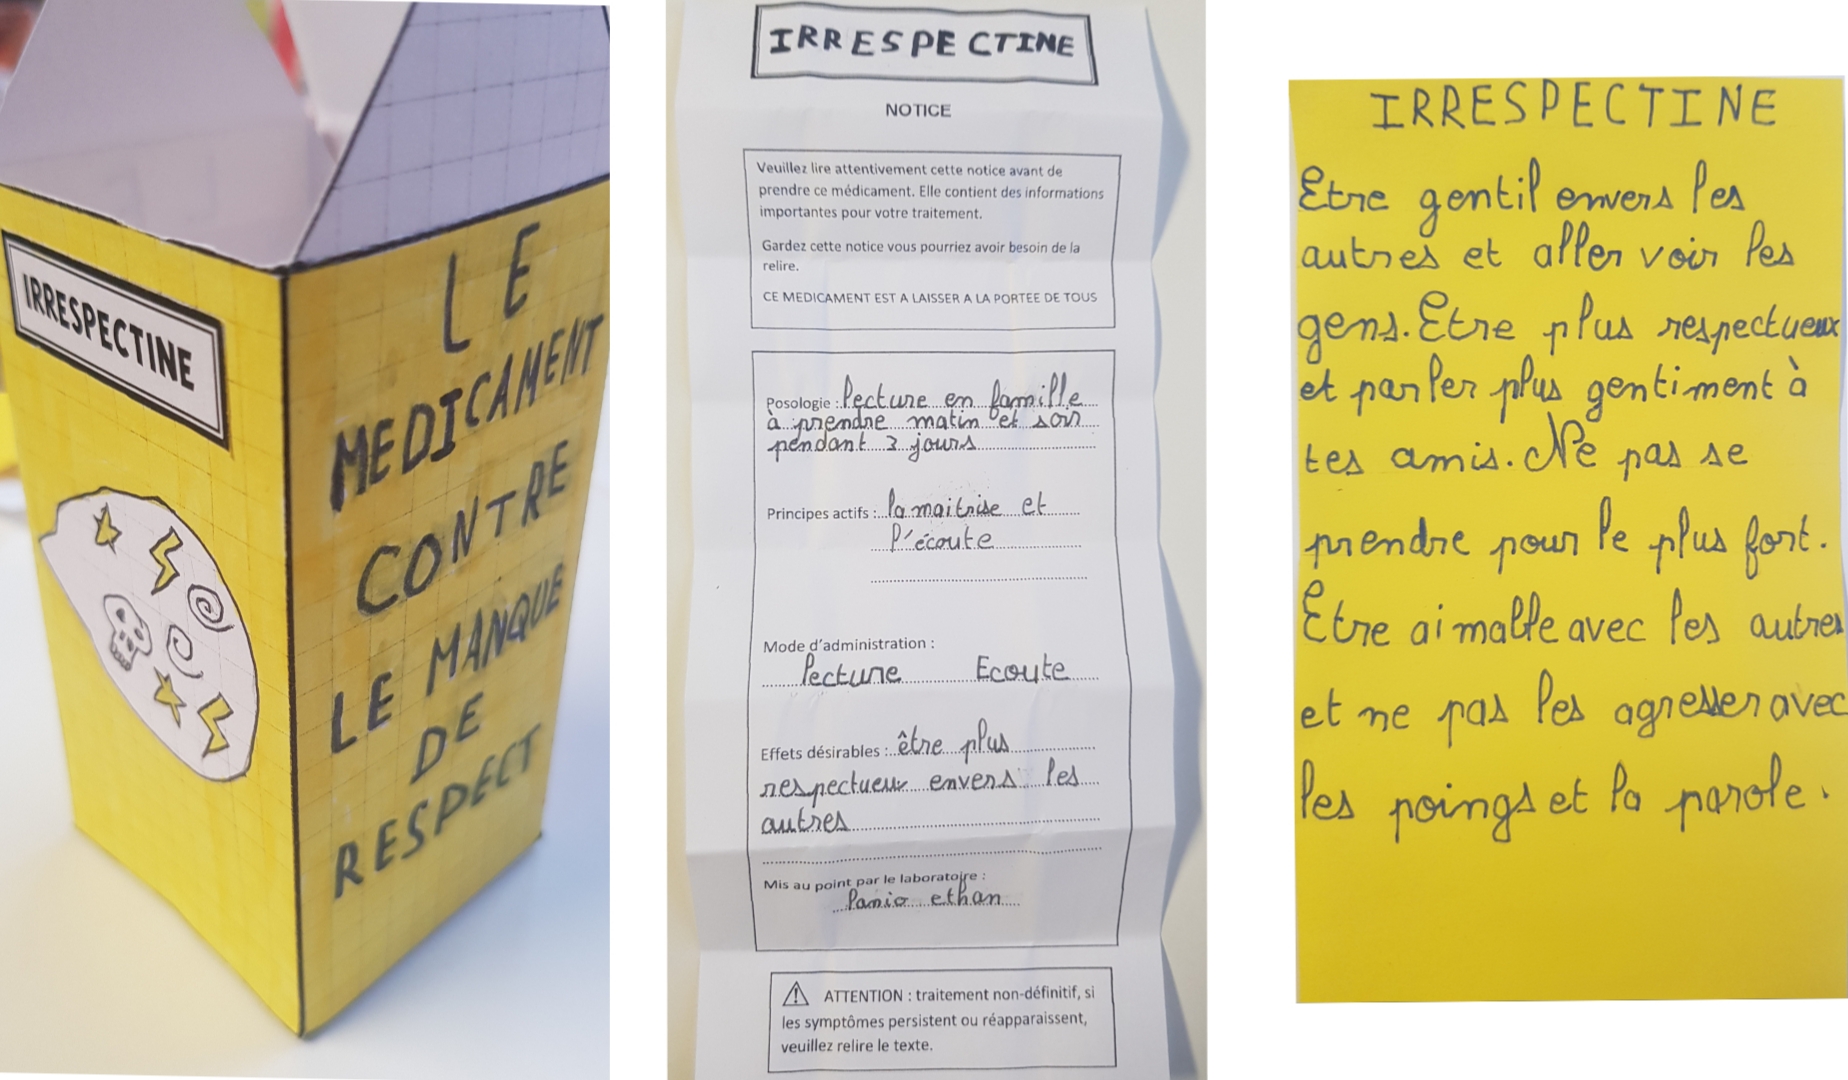 IRRESPECTINE
LE
MEDICAMENT
CONTRE
LE MANQUE
DE
RESPECT
IRRESPECTINE
NOTICE
Veuillez lire attentivement cette notice avant de
prendre ce médicament. Elle contient des informations
importantes pour votre traitement.
Gardez cette notice vous pourriez avoir besoin de la
relire.
CE MEDICAMENT EST A LAISSER A LA PORTEE DE TOUS
Posologie : lecture en famille
à prendre matin et soir
pendant 3 jours
Principes actifs : la maitrise et
l'écoute
Mode d'administration :
lecture Ecoute
Effets désirables : être plus
respectueux envers les
autres
Mis au point par le laboratoire :
ethan
ATTENTION : traitement non-définitif, si
les symptômes persistent ou réapparaissent,
veuillez relire le texte.
IRRESPECTINE
Etre gentil envers les
autres et aller voir les
gens. Etre plus respectueux
et parler plus gentiment à
tes amis. Ne pas se
prendre pour le plus fort.
Etre aimalbe avec les autres
et ne pas les agresser avec
les poings et la parole.